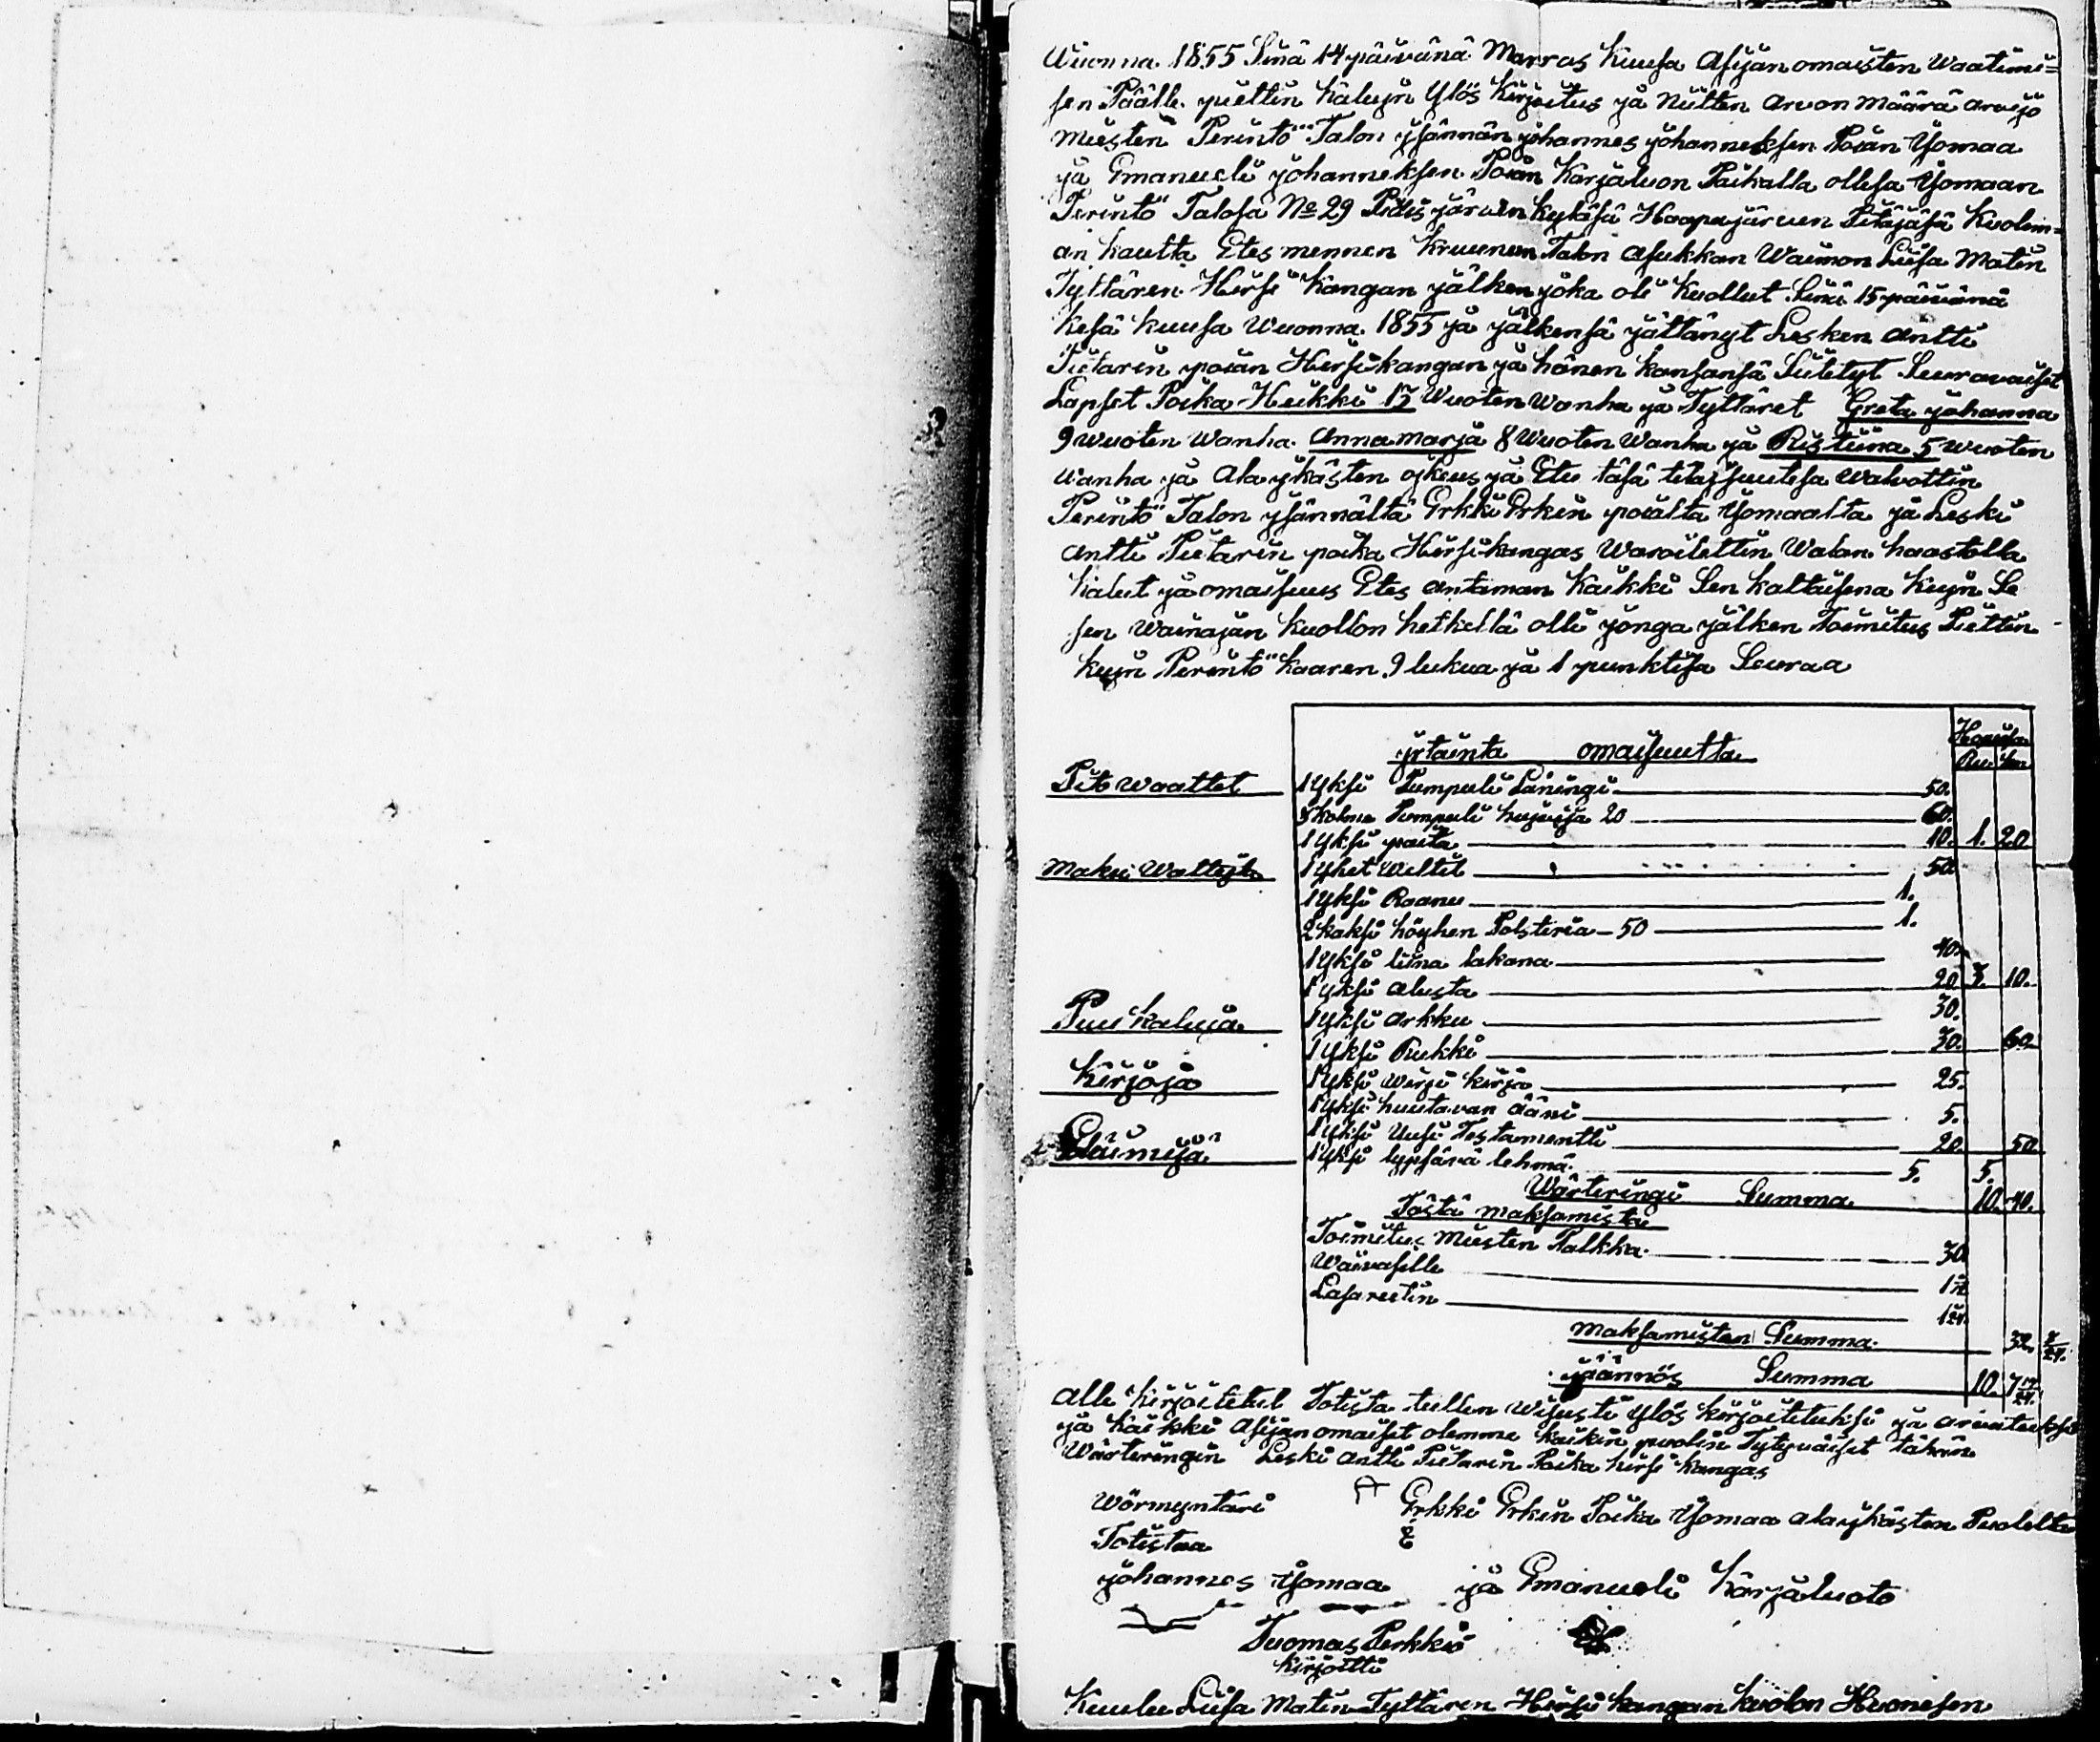 Wuonna 1855 Sinä 14 päivänä Marras kuusa Asijan omaisten waatimi=
sen Päälle piettin kalujn Ylös kirjoitus ja niitten arvon määrä arvijo
miesten Perintö Talon ysännän johannes johanneksen Poian Yomaa
ja Emanueli johanneksen Poian Karjaluon Paikalla ollesa Yomaan
Perintö Talosa No 29 Pidisjärven kyläsä Haapajärven Pitäjäsä Kuolem=
an kautta Etes mennen kruunun Talon asukkan Waimon Liisa Matin
Tyttären Hirsi kangan jälken joka oli kuollut Sinä 15 päivänä
kesä kuusa Wuonna 1855 ja jälkensä jättänyt Lesken antti
Pietarin poian Hirsikangan ja hänen kansansa Siitetyt Seuravaiset
Lapset Poika Heikki 13 Wuoten Wanha ja Tyttäret Greta johanna
9 Wuoten Wanha Anna marja 8 Wuoten Wanha ja Ristiina 5 Wuoten
Wanha ja ala ykästen ojkeus ja Etu täsä tilajsuutesa walvottin
Perintö Talon ysännältä Erkki Erkin poialta Yomaalta ja Leski
antti Pietarin poika Hirsikangas Waroitettin Walan haastolla
kalut ja omaisuus Etes antaman kaikki Sen kaltaisena kujn Se
sen Wainajan kuollon hetkellä olli jonga jälken Toimitus Piettin
kujn Perintö kaaren 9 lukua ja 1 punktisa Seuraa
jrtainta omaisuutta Hopiasa
Ru. Kop.
Pito waattet 1 yksi Pumpuli Läningi 50.
3 kolme Pumpuli hujvija 20 60.
1 yksi paita 10. 1. 20
Maku Wattejta 1 yhet Weltit 50
1 yksi Raanu 1.
2 kaksi höyhen Polsteria - 50 1.
1 yksi liina lakana 40.
1 yksi alusta 20. 3. 10.
Puu kaluja 1 yksi arkku 30.
1 yksi Rukki 30. 60.
Kirjoja 1 yksi wirsi kirja 25.
1 yksi huutavan ääni 5.
1 yksi Uusi Testamentti 20. 50.
Eläimijä 1 yksi lypsävä lehmä 5. 5.
Wärteringi Summa 10. 40.
Tästä maksamista
Toimitus miesten Palkka 30
Waivasille
Lasarettin
maksamisten Summa 32.
jäännös Summa 10. 7
alle kirjoitetut Totista tullen wisusti ylös kirjoitetuksi ja arvatuksi
ja kaikki Asijan omaiset olemme kaikin puolin Tytyväiset tähän
Wärteringin Leski antti Pietarin Poika hirsi kangas
Wörmyntäri Erkki Erkin Poika Yomaa ala ykästen Puolelta
Totistaa
johannes Yomaa ja Emanueli Karjaluoto
Tuomas Perkkiö
kirjoitti
Kuulu Liisa Matin Tyttären Hirsi kangan kuolon Huonesen